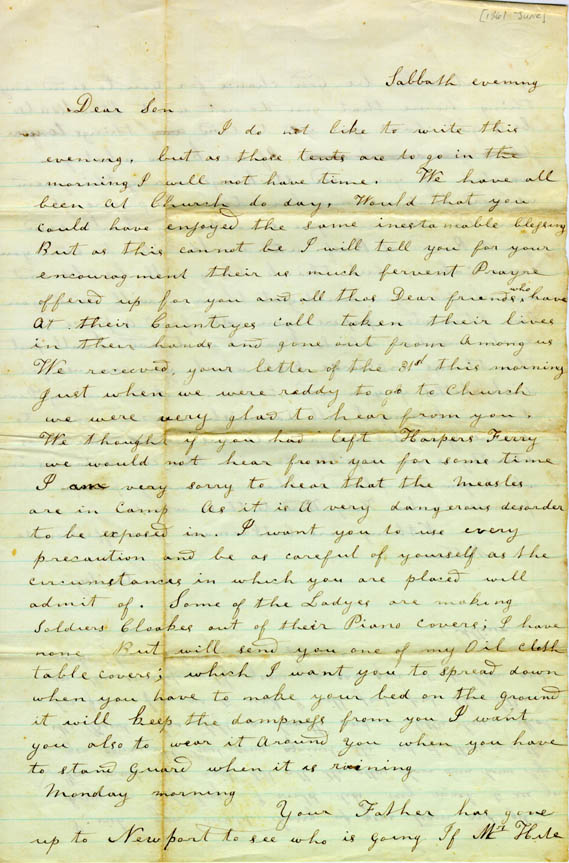 [1861 June]
Sabbath evening
Dear Son
I do not like to write this
evening, but as those tents are to go in the
morning I will not have time. We have all
been at Church do day, Would that you
could have enjoyed the same inestamable blessing
But as this cannot be I will tell you for your
encouragment their is much fervent Prayre
offered up for you and all thos Dear friends who have
At their Countryes call taken their lives
in their hands and gone out from among us
We received your letter of the 31st this morning
Just when we were reddy to go to Church
we were very glad to hear from you.
We thought if you had left Harpers Ferry
we would not hear from you for some time
I am very sorry to hear that the Measles
are in Camp As it is A very dangerous desorder
to be exposed in. I want you to use every
precaution and be as careful of yourself as the
circumstances in which you are placed will
admit of. Some of the Ladyes are making
Soldiers Cloakes out of their Piano covers; I have
none But will send you one of my Oil cloth
table covers; which I want you to spread down
when you have to make your bed on the ground
it will keep the dampness from you I want
you also to wear it around you when you have
to stand guard when it is raining
Monday morning
Your Father has gone
up to Newport to see who is going If Mr Hite